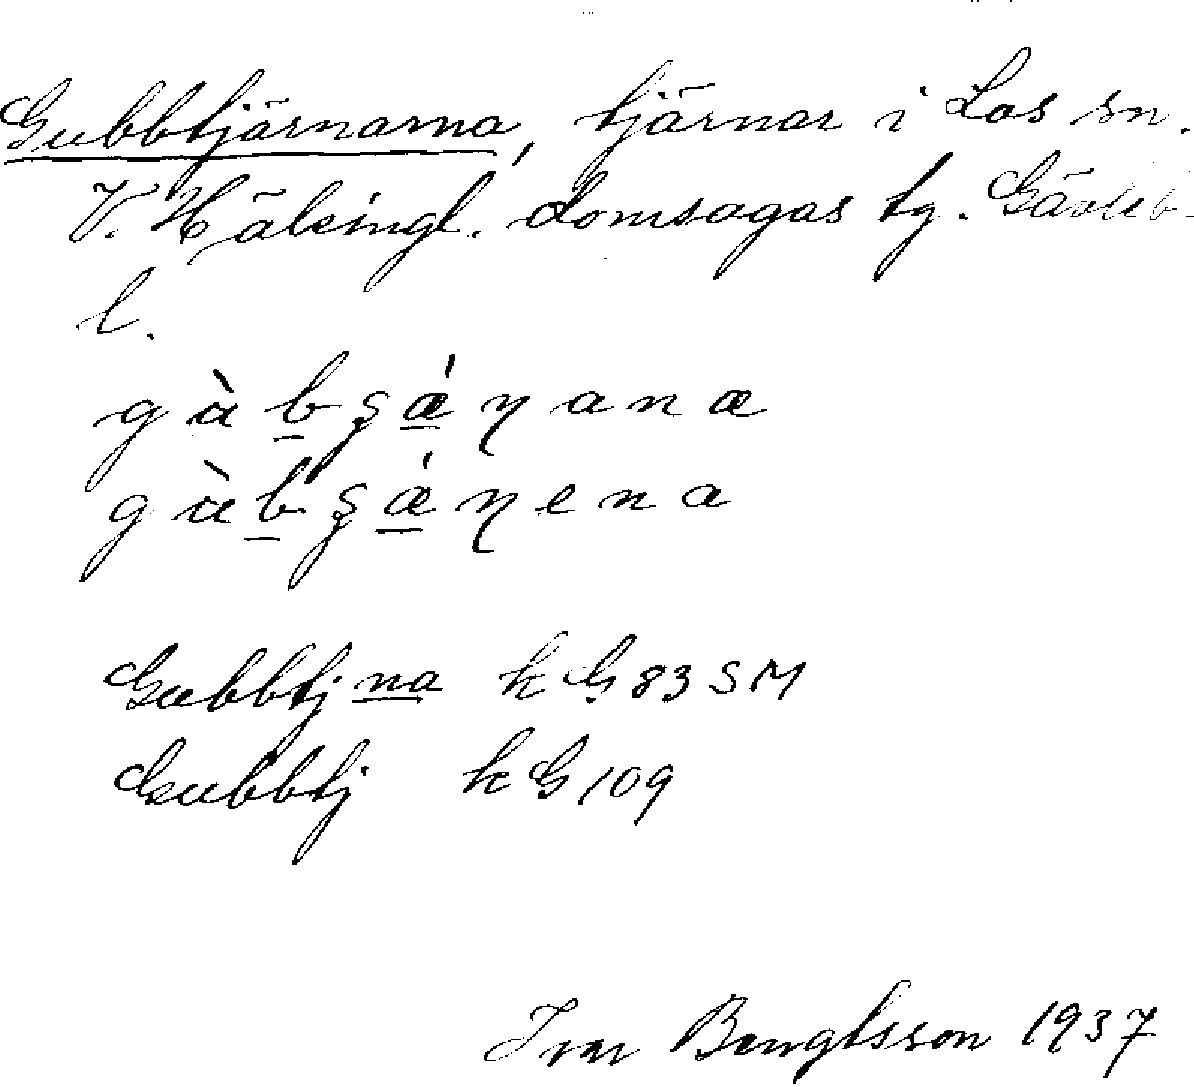 Gubbtjärnarna, tjärnar i Los sn.
V. Hälsingl. domsagas tg. Gävleb-
l.
g à b ʂ ǽ ɳ a n a
g à b ʂ ǽ ɳ e n a
Gubbtjna k G 83 SM
Gubbtj k G 109
Ivar Bengtsson 1937